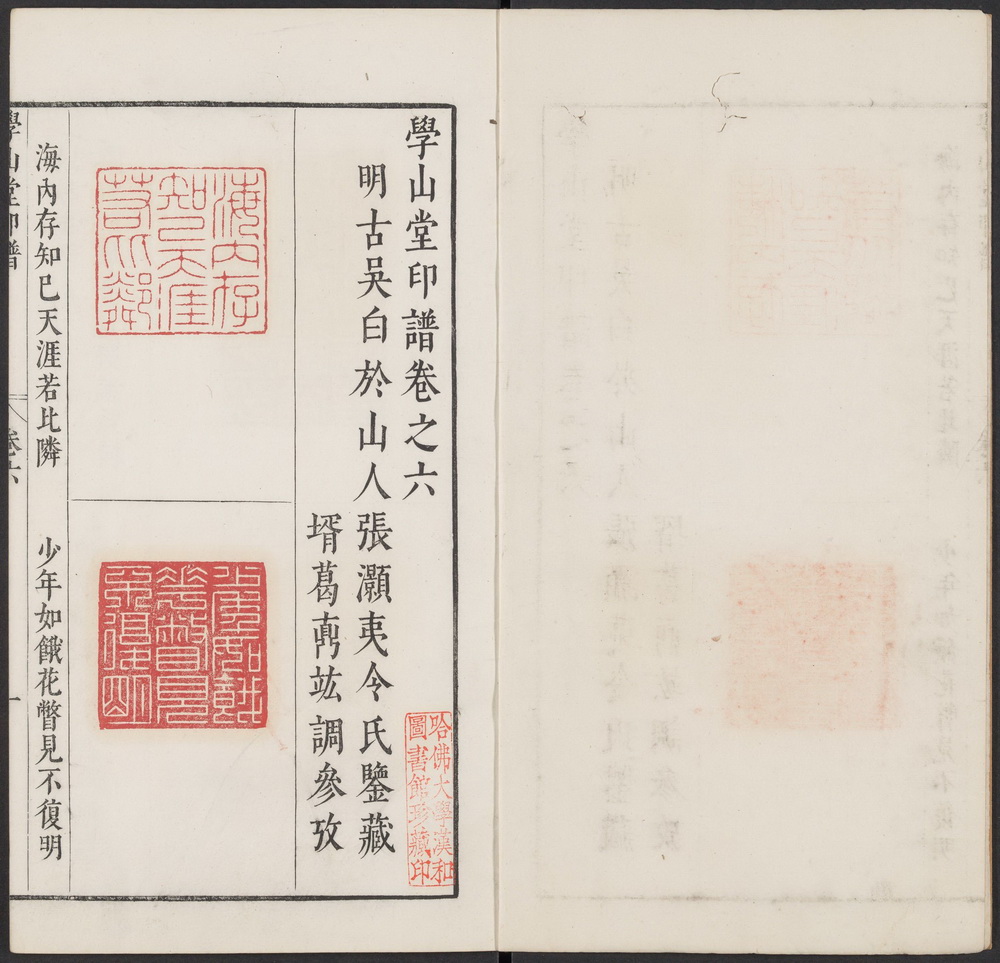 學山堂印譜卷之六
明古吳白於山人張灝夷令氏鑒藏
壻葛竑調參攷
哈佛大學漢和
圖書館珍藏印
海內存
知己天涯
若比鄰
少年如餓
花瞥見
不復明
海內存知已天涯若比隣
少年如餓花瞥見不復明
學山堂印譜
卷六
一